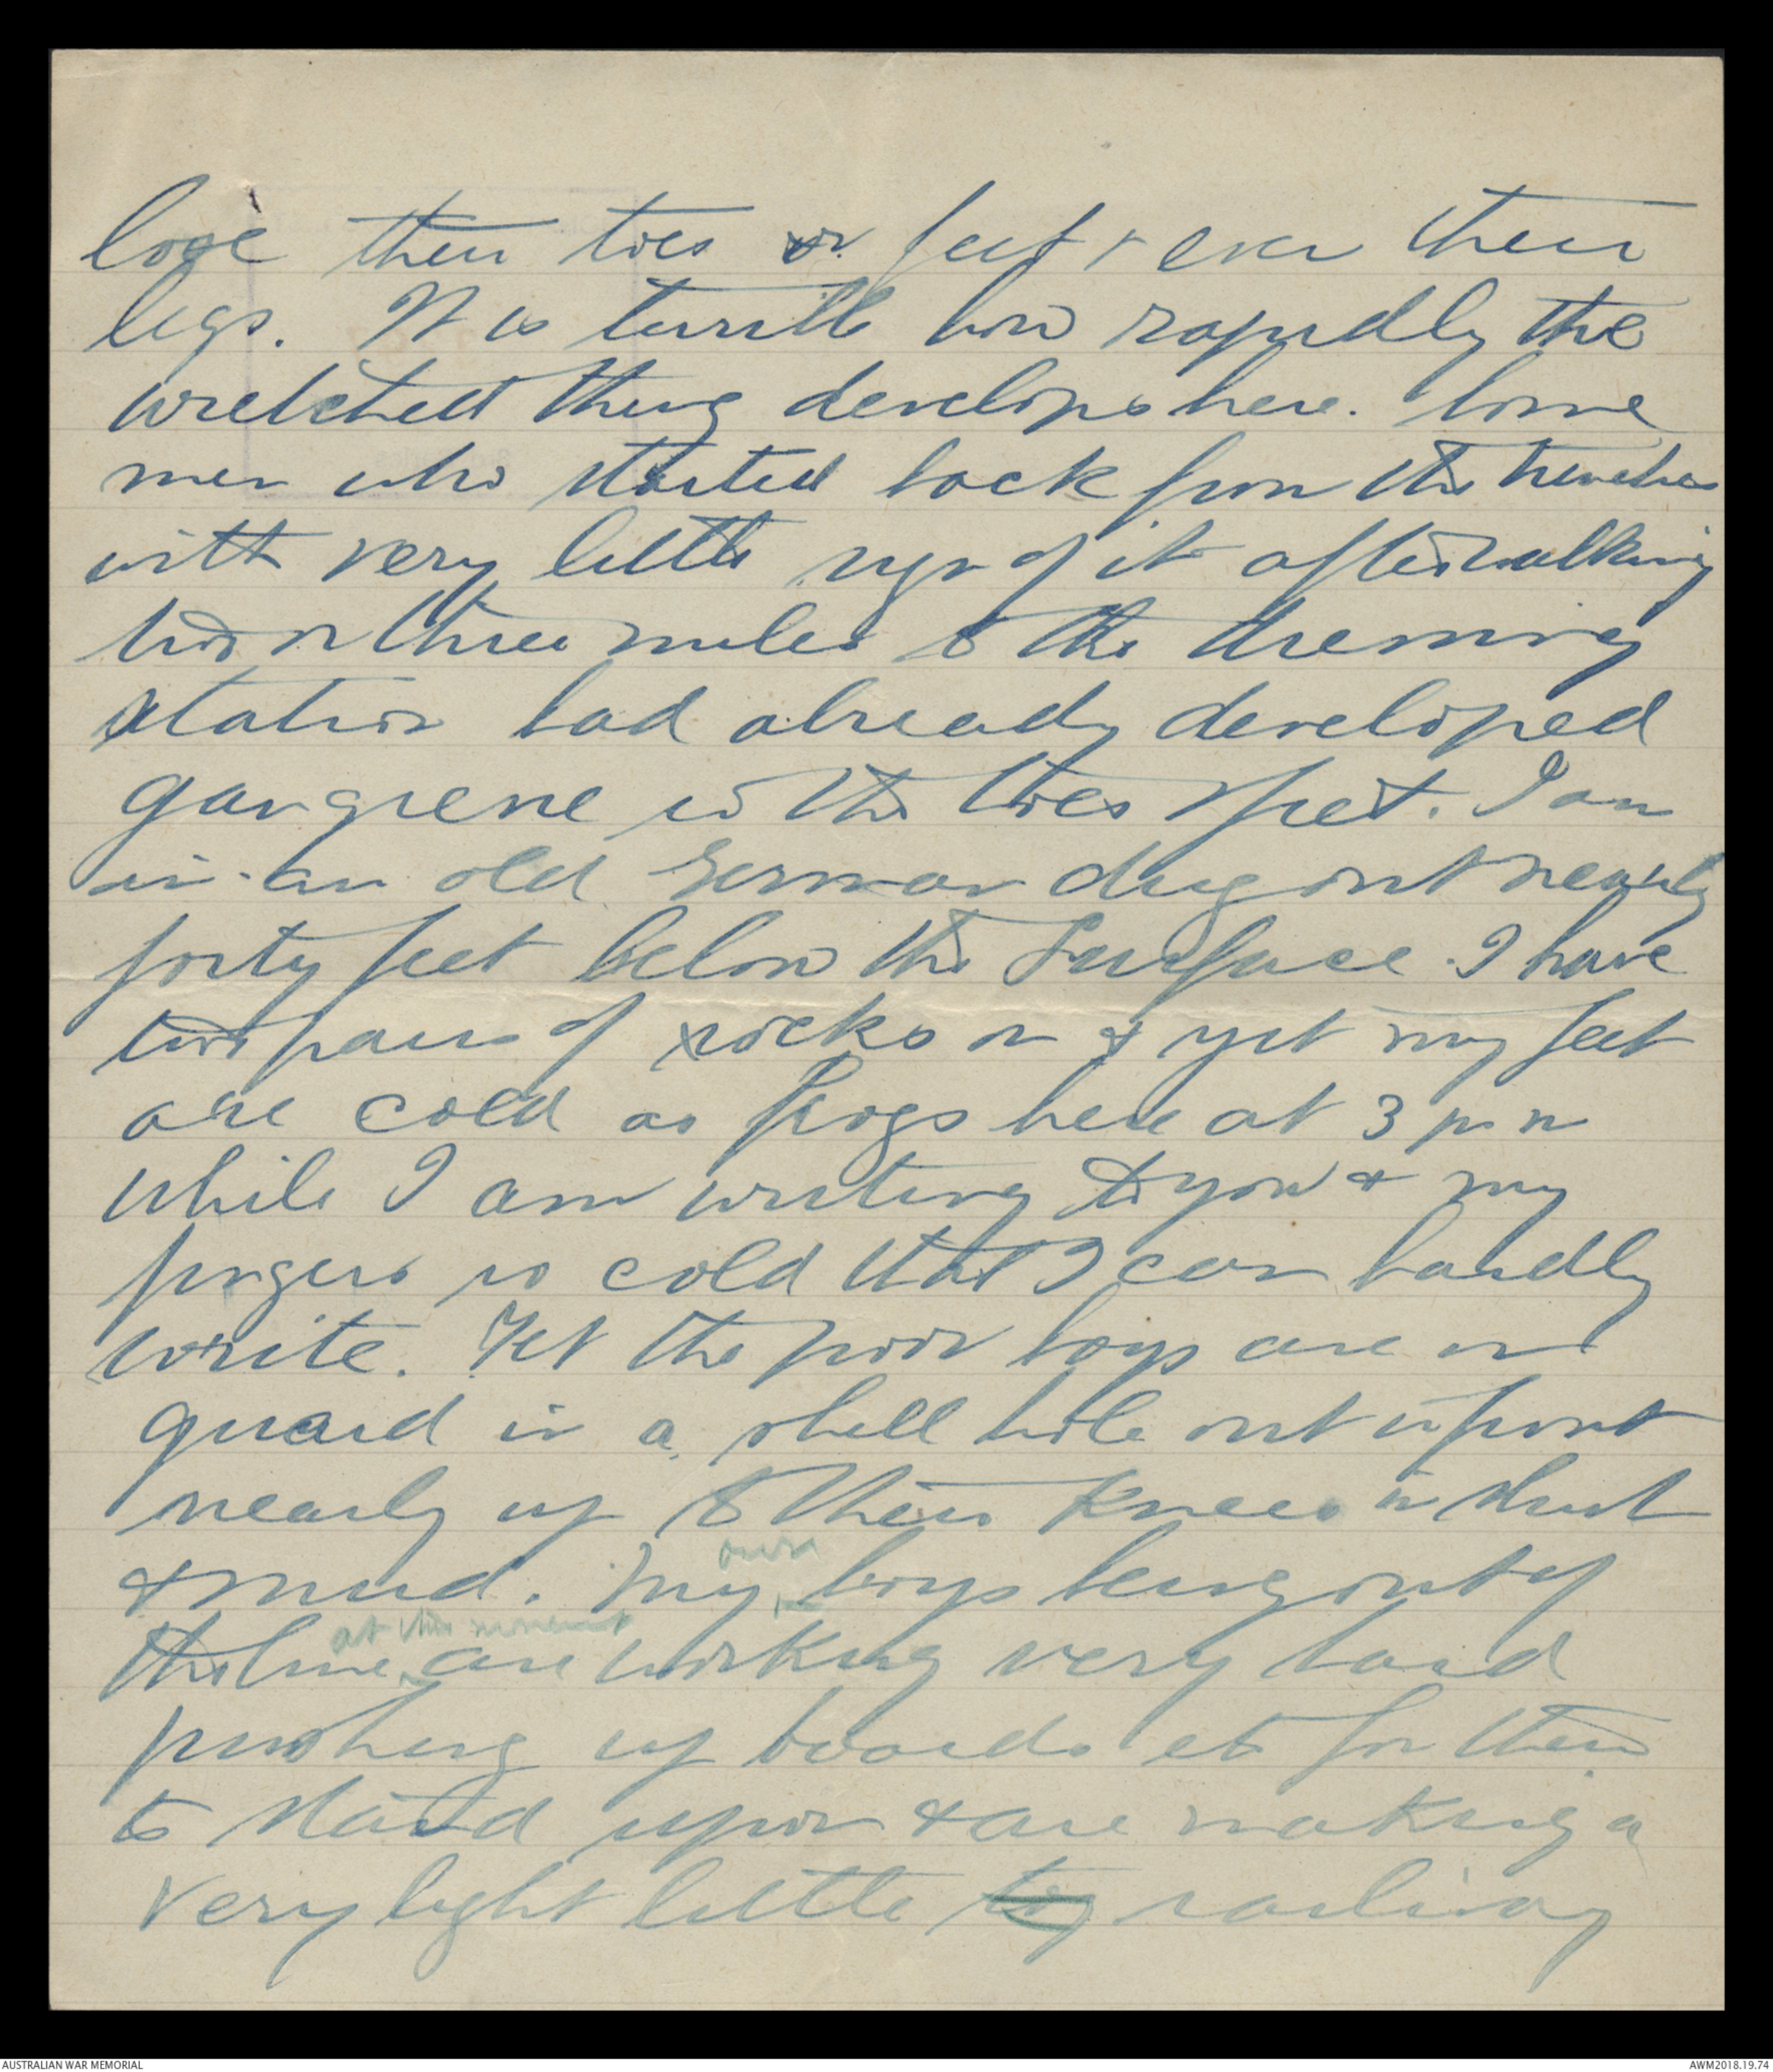 lose their toes or feet & even their
legs. It is terrible how rapidly the
wretched thing develops here. Some
men who started back from the trenches
with very little sign of it after walking
two or three miles to the dressing
station had already developed
gangrene in the toes & feet. I am
in an old German dug out nearly
forty feet below the surface. I have
two pairs of socks on & yet my feet
are cold as frogs here at 3 pm
while I am writing to you & my
fingers so cold that I can hardly
write. Yet the poor boys are on
guard in a shell hole out in front
nearly up to their knees in slush
& mud. My own boys being out of
the line at this moment are working very hard
pushing up boards etc for them
to stand upon & are making a
very light little toy railway
AUSTRALIAN WAR MEMORIAL
AWM2018.19.74